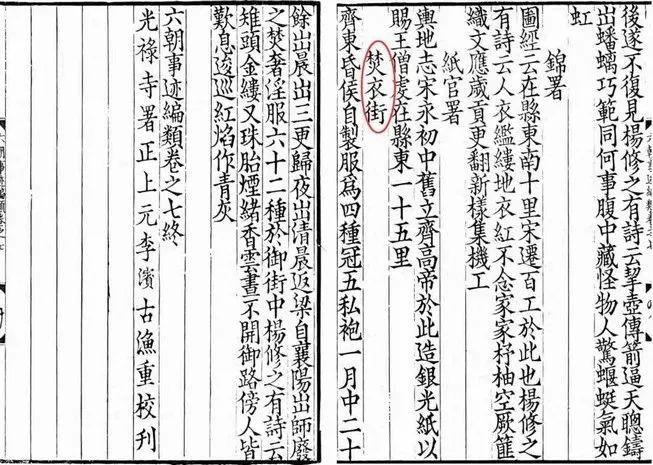 後遂不復見楊修之有詩云挈壺傳箭逼天聰鑄
出蟠螭巧範同何事腹中藏怪物人驚蝘蜓氣如
虹
錦署
圖經云在縣東南十里宋遷百工於此也楊修之
有詩云人衣繿縷地衣紅不念家家杼柚空厥篚
織文應歲貢更翻新樣集機工
紙官署
輿地志宋永初中舊立齊高帝於此造銀光紙以
賜王僧虔在縣東一十五里
焚衣街
齊東昏侯自製服爲四種冠五私袍一月中二十
餘出晨出三更歸夜出清晨返梁自襄陽出師廢
之焚奢淫服六十二種於御街中楊修之有詩云
雉頭金縷又珠胎煙緒香雲晝不開御路傍人皆
歎息逡巡紅焰作青灰
六朝事迹編類卷之七終
光祿寺署正上元李濱古漁重校刊